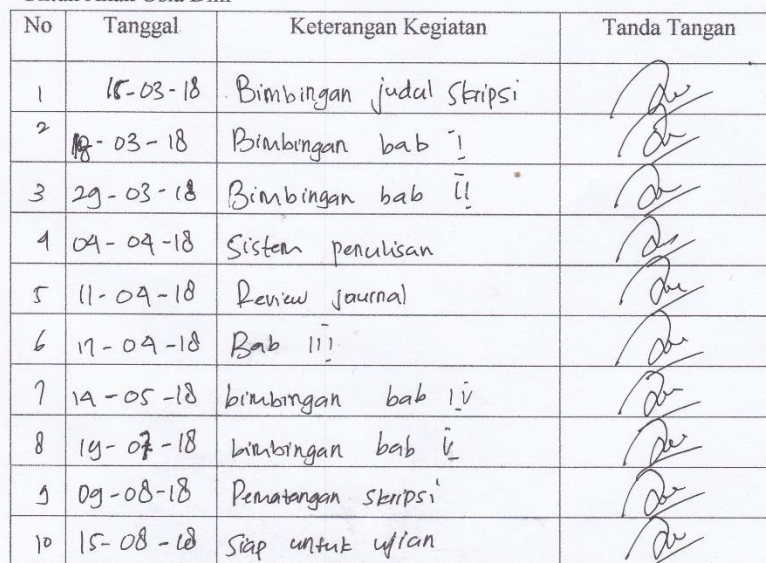 No Tanggal Keterangan Kegiatan Tanda Tangan
1 15-03-18 Bimbingan judul skripsi
2 18-03-18 Bimbingan bab I
3 29-03-18 Bimbingan bab II
4 04-04-18 Sistem penulisan
5 11-04-18 Review journal
6 17-04-18 Bab III
7 14-05-18 bimbingan bab IV
8 19-07-18 bimbingan bab V
9 09-08-18 Pematangan skripsi
10 15-08-18 Siap untuk ujian